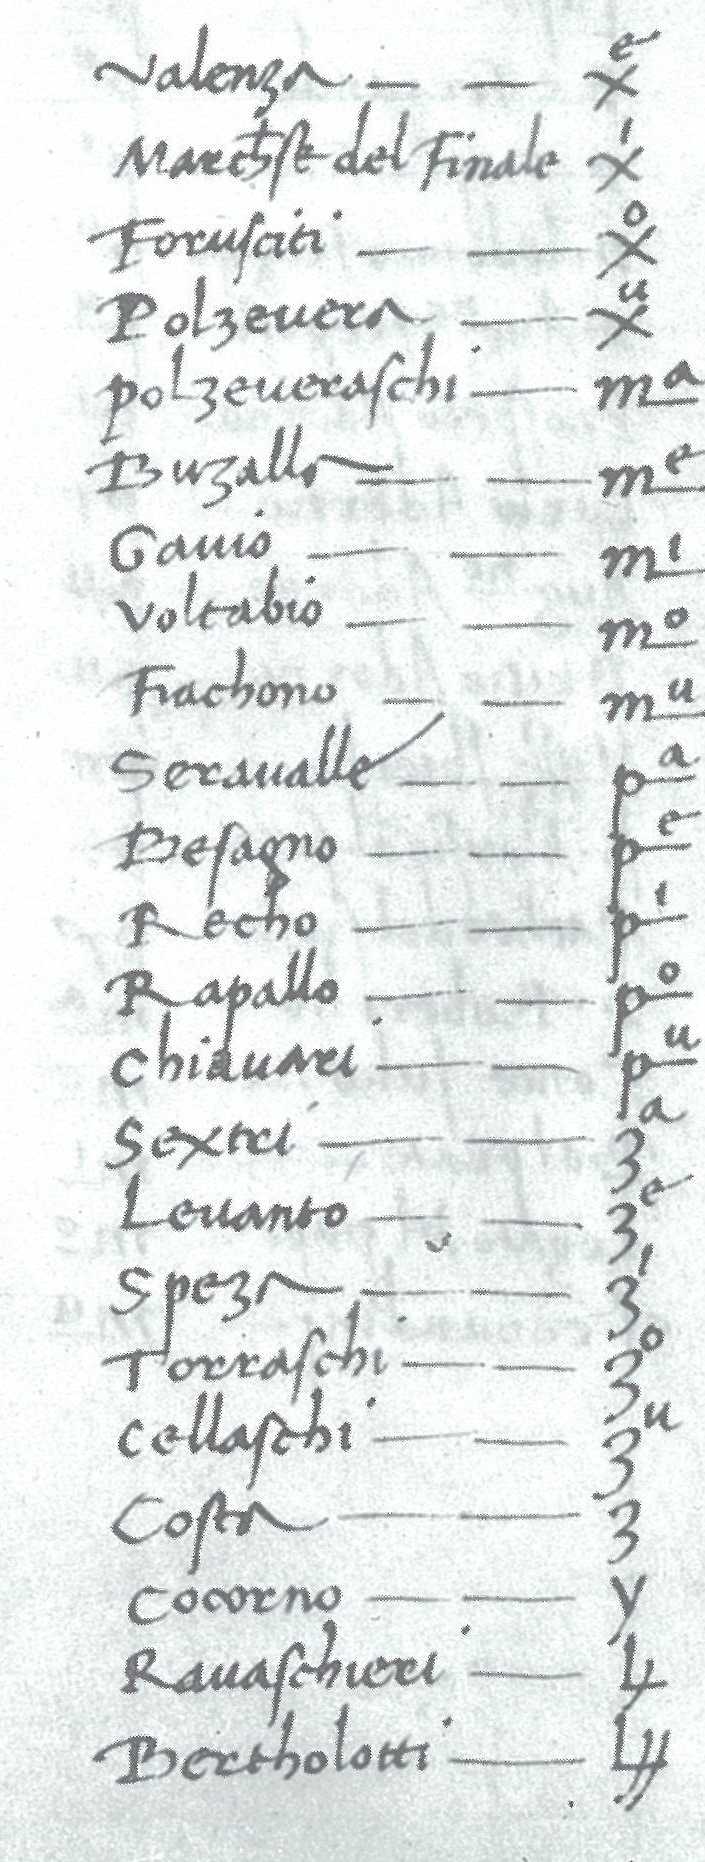 Valenza — — x^e
March^se del Finale x^i
Forusciti — — x^o
Polzeuera — x^u
polzeueraschi — m^a
Buzalla — — m^e
Gauio — — m^i
Voltabio — — m^o
Fiachono — — m^u
Seraualle — — p^a
Besagno — — p^e
Recho — — p^i
Rapallo — — p^o
Chiauari — — p^u
Sextri — — 3^a
Leuanto — — 3^e
Speza — — 3^i
Torraschi — — 3^o
Cellaschi — — 3^u
Costa — — 3
Cocorno — — y
Rauaschieri —
Bertholotti —